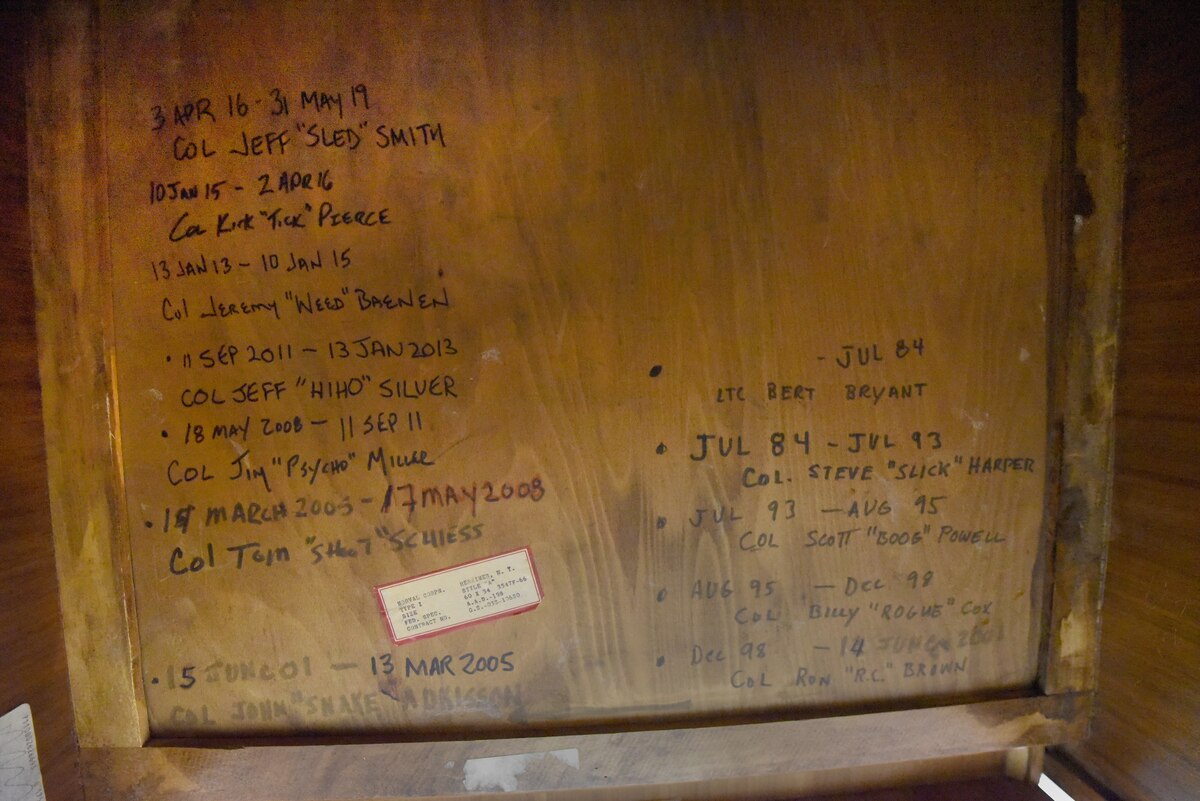 3 APR 16 - 31 MAY 19
COL JEFF "SLED" SMITH
10 JAN 15 - 2 APR 16
Col Kirk "Tick" PIERCE
13 JAN 13 - 10 JAN 15
Col Jeremy "WEED" BAENEN
• 11 SEP 2011 - 13 JAN 2013
COL JEFF "HIHO" SILVER
• 18 MAY 2008 - 11 SEP 11
COL Jim "Psycho" Miller
• MARCH 2005 - 17 MAY 2008
Col Tom "SHOT" SCHIESS
HERKIMER, N. Y.
TYPE I STYLE "A"
SIZE 60 X 34
FED. SPEC.
CONTRACT NO.
• 15 JUNE 01 - 13 MAR 2005
COL JOHN "SNAKE" ADKISSON
• - JUL 84
LTC BERT BRYANT
• JUL 84 - JUL 93
COL. STEVE "SLICK" HARPER
• JUL 93 - AUG 95
COL SCOTT "BOOG" POWELL
• AUG 95 - Dec 98
COL BILLY "ROGUE" COX
• Dec 98 - 14 JUNE 2001
COL RON "R.C." BROWN